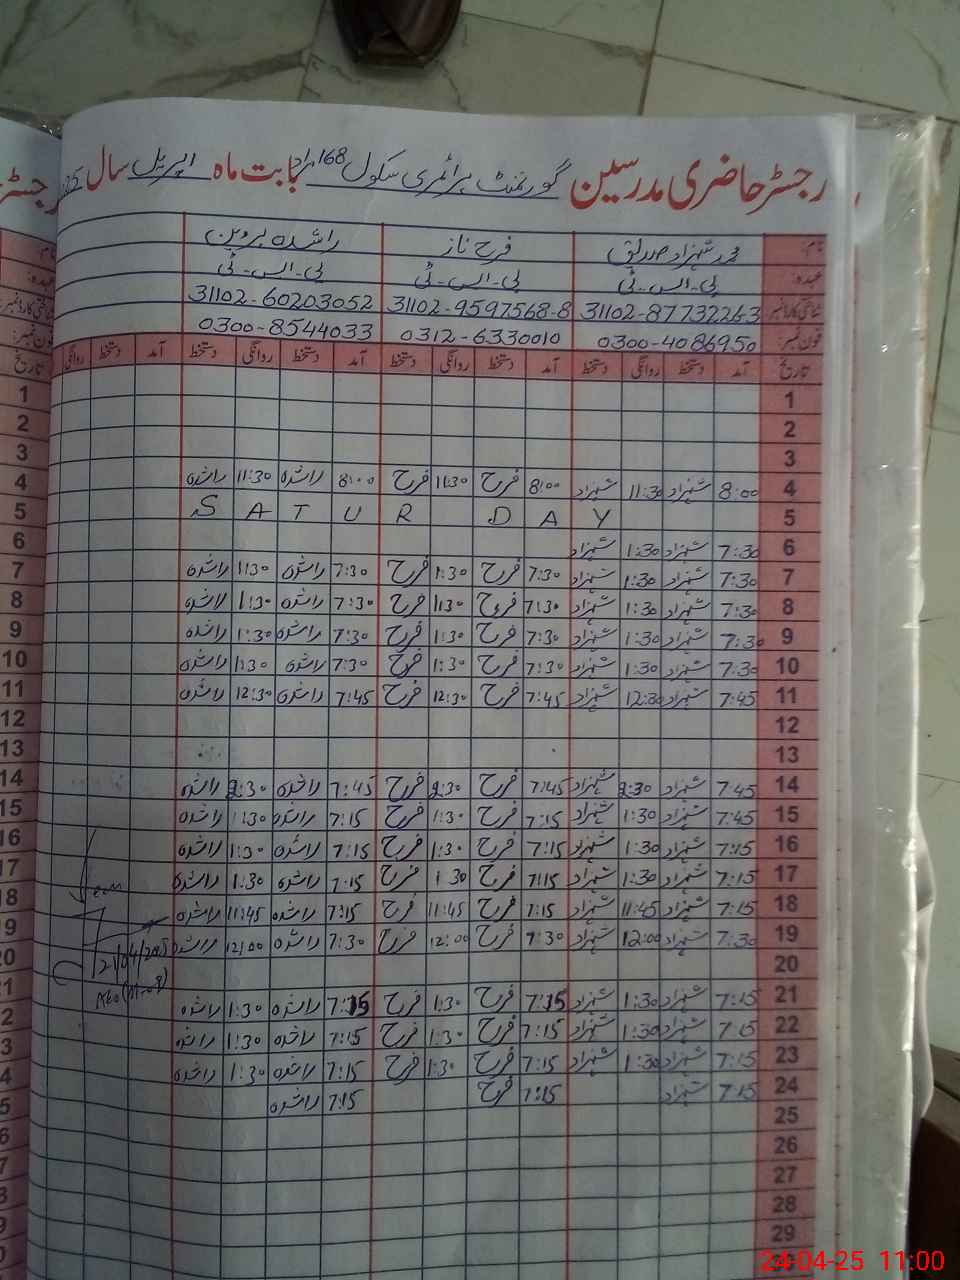 رجسٹر حاضری مدرسین گورنمنٹ پرائمری سکول 168 مراد بابت ماہ اپریل سال
نام: محمد شہزاد صدیق فرح ناز راشدہ پروین
عہدہ: پی-ایس-ٹی پی-ایس-ٹی پی-ایس-ٹی
شناختی کارڈ نمبر 31102-87732263 31102-9597568-8 31102-60203052
فون نمبر: 0300-4086950 0312-6330010 0300-8544033
تاریخ آمد دستخط روانگی دستخط آمد دستخط روانگی دستخط آمد دستخط روانگی دستخط آمد دستخط روانگی
1
2
3
4 8:00 شہزاد 11:30 شہزاد 8:00 فرح 11:30 فرح 8:00 راشدہ 11:30 راشدہ
5 S A T U R D A Y
6 7:30 شہزاد 1:30 شہزاد
7 7:30 شہزاد 1:30 شہزاد 7:30 فرح 1:30 فرح 7:30 راشدہ 1:30 راشدہ
8 7:30 شہزاد 1:30 شہزاد 7:30 فرح 1:30 فرح 7:30 راشدہ 1:30 راشدہ
9 7:30 شہزاد 1:30 شہزاد 7:30 فرح 1:30 فرح 7:30 راشدہ 1:30 راشدہ
10 7:30 شہزاد 1:30 شہزاد 7:30 فرح 1:30 فرح 7:30 راشدہ 1:30 راشدہ
11 7:45 شہزاد 12:30 شہزاد 7:45 فرح 12:30 فرح 7:45 راشدہ 12:30 راشدہ
12
13
14 7:45 شہزاد 2:30 شہزاد 7:45 فرح 2:30 فرح 7:45 راشدہ 2:30 راشدہ
15 7:45 شہزاد 1:30 شہزاد 7:15 فرح 1:30 فرح 7:15 راشدہ 1:30 راشدہ
16 7:15 شہزاد 1:30 شہزاد 7:15 فرح 1:30 فرح 7:15 راشدہ 1:30 راشدہ
17 7:15 شہزاد 1:30 شہزاد 7:15 فرح 1:30 فرح 7:15 راشدہ 1:30 راشدہ
18 7:15 شہزاد 11:45 شہزاد 7:15 فرح 11:45 فرح 7:15 راشدہ 11:45 راشدہ
19 7:30 شہزاد 12:00 شہزاد 7:30 فرح 12:00 فرح 7:30 راشدہ 12:00 راشدہ
20
21 7:15 شہزاد 1:30 شہزاد 7:15 فرح 1:30 فرح 7:15 راشدہ 1:30 راشدہ
22 7:15 شہزاد 1:30 شہزاد 7:15 فرح 1:30 فرح 7:15 راشدہ 1:30 راشدہ
23 7:15 شہزاد 1:30 شہزاد 7:15 فرح 1:30 فرح 7:15 راشدہ 1:30 راشدہ
24 7:15 شہزاد 7:15 فرح 7:15 راشدہ
25
26
27
28
29
24-04-25 11:00